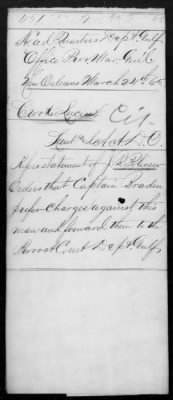 Head Quarters Dept. Gulf
Office Pro. Mar. Genl.
New Orleans March 24th 65
Curtis
Cit.
Lieut. & Act A.D.C.
statement of J.
Orders that Captain Braden
prefer charges against this
man and forward them to the
Provost Court Dept. Gulf